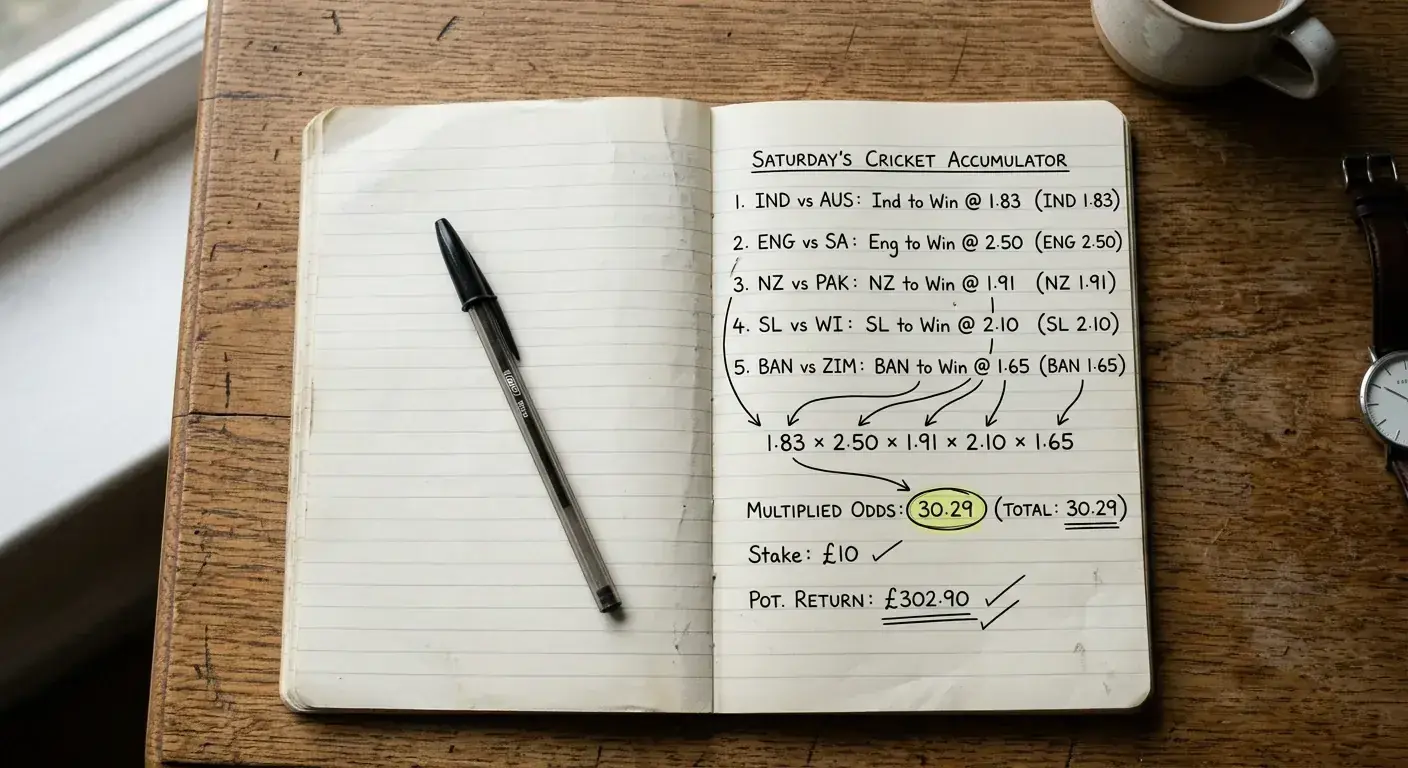 SATURDAY'S CRICKET ACCUMULATOR
1. IND vs AUS: Ind to Win @ 1.83 (IND 1.83)
2. ENG vs SA: Eng to Win @ 2.50 (ENG 2.50)
3. NZ vs PAK: NZ to Win @ 1.91 (NZ 1.91)
4. SL vs WI: SL to Win @ 2.10 (SL 2.10)
5. BAN vs ZIM: BAN to Win @ 1.65 (BAN 1.65)
1.83 × 2.50 × 1.91 × 2.10 × 1.65
MULTIPLIED ODDS: 30.29 (TOTAL: 30.29)
Stake: £10 ✓
POT. RETURN: £302.90 ✓✓